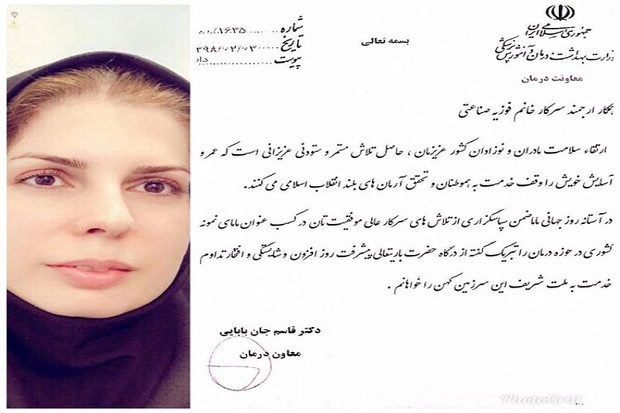 جمهوری اسلامی ایران
وزارت بهداشت، درمان و آموزش پزشکی
معاونت درمان
بسمه تعالی
شماره ۱۶۳۵/
تاریخ ۳۹۸/۰۲/۰۳
پیوست
همکار ارجمند سرکار خانم فوزیه صناعتی
ارتقاء سلامت مادران و نوزادان کشور عزیزمان ، حاصل تلاش مستمر و ستودنی عزیزانی است که عمر و
آسایش خویش را وقف خدمت به هموطنان و تحقق آرمان های بلند انقلاب اسلامی می کنند.
در آستانه روز جهانی ماما ضمن سپاسگزاری از تلاش های سرکار عالی موفقیت تان در کسب عنوان مامای نمونه
کشوری در حوزه درمان را تبریک گفته از درگاه حضرت باریتعالی پیشرفت روز افزون و شایستگی و افتخار تداوم
خدمت به ملت شریف این سرزمین کهن را خواهانم .
دکتر قاسم جان بابایی
معاون درمان
PhotoGrid